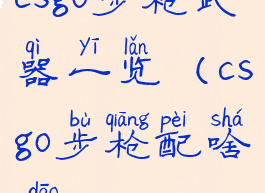 csgo步枪武
qì yī lǎn
器一览（cs
bù qiāng pèi shá
go步枪配啥
dāo